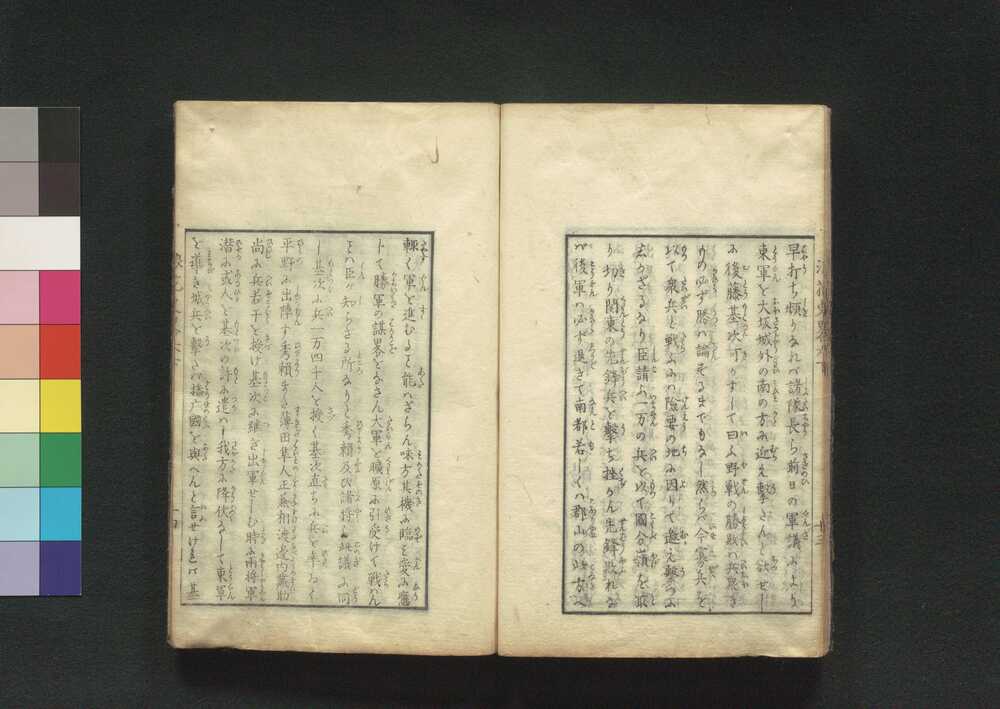 早打ち頻りなれバ諸隊長ら前日の軍議により
東軍を大坂城外の南の方に迎え撃さんと決せし
に後藤基次可かずして曰ふ野戦の勝敗ハ兵衆き
ものゝ必ず勝ハ論ずるまでもなし然らバ今寡兵を
以て衆兵と戦ふにハ険要の地に因りて邀え撃つに
若かざるなり臣請ふ一万の兵を以て國分嶺を取
り切り関東の先鋒兵を撃ち挫かん先鋒敗れな
バ後軍ハ必ず退きて南都若しくハ郡山の
輙く軍を進むる能ハざらん味方其機に臨を変に應
トて勝軍の謀畧をなさん大軍を曠原に引受けて戦ハん
とハ臣が知らざる所なりと秀頼及び諸将も其議に同
し基次に兵一万四十人を授く基次直ちに兵を率ゐて
平野に出陣す秀頼更に薄田隼人正兼相渡邊内蔵助
尚に兵若干を授け基次に継ぎ出軍せしむ時に両将軍
潜に或人を基次の許に遣ハし我方に降伏なして東軍
を導き城兵を撃ハ播广國を與へんと言せけれバ基